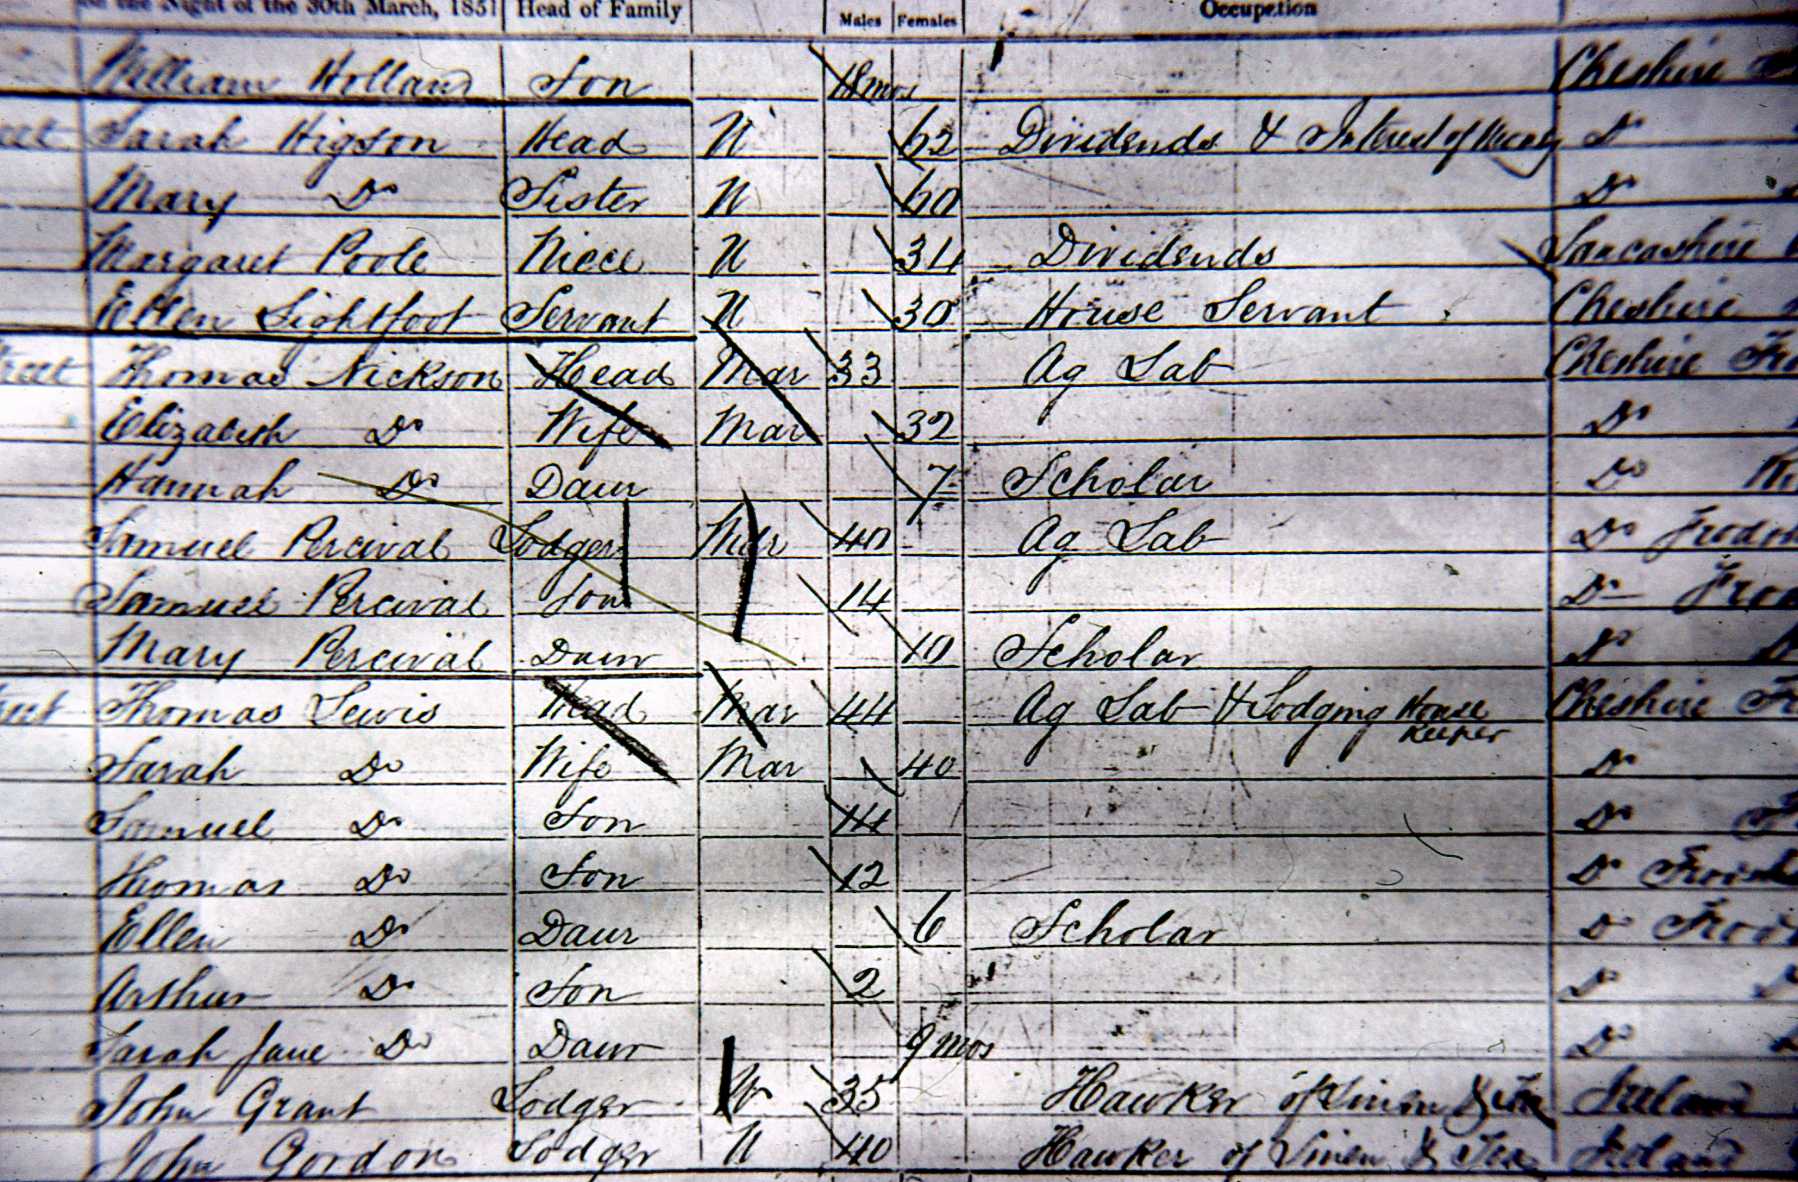 the Night of the 30th March, 1851 Head of Family Males Females Occupation
William Holland Son 18 mos Cheshire
Sarah Higson Head U 62 Dividends & Interest of Money Do
Mary Do Sister U 60 Do
Margaret Poole Niece U 34 Dividends Lancashire
Ellen Lightfoot Servant U 30 House Servant Cheshire
Thomas Nickson Head Mar 33 Ag Lab Cheshire
Elizabeth Do Wife Mar 32 Do
Hannah Do Daur 7 Scholar Do
Samuel Percival Lodger Widr 40 Ag Lab Do
Samuel Percival Son 14 Do
Mary Percival Daur 10 Scholar Do
Thomas Lewis Head Mar 44 Ag Lab & Lodging House Keeper Cheshire
Sarah Do Wife Mar 40 Do
Samuel Do Son 14 Do
Thomas Do Son 12 Do
Ellen Do Daur 6 Scholar Do
Arthur Do Son 2 Do
Sarah Jane Do Daur 9 mos Do
John Grant Lodger 35 Hawker of Linen & Tea Ireland
John Gordon Lodger U 40 Hawker of Linen & Tea Ireland